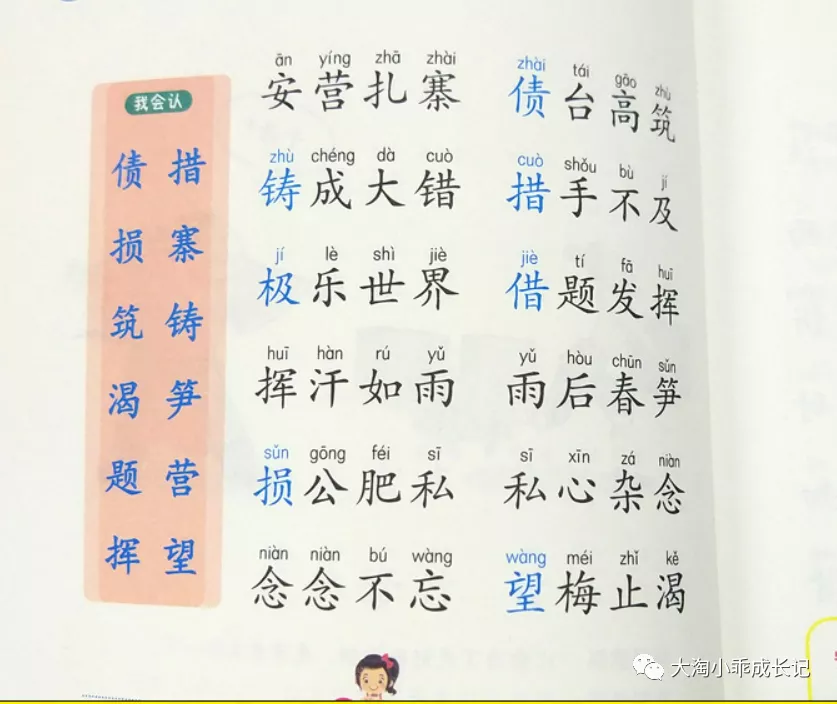 我会认
债 措
损 寨
筑 铸
渴 笋
题 营
挥 望
ān yíng zhā zhài zhài tái gāo zhù
安营扎寨 债台高筑
zhù chéng dà cuò cuò shǒu bù jí
铸成大错 措手不及
jí lè shì jiè jiè tí fā huī
极乐世界 借题发挥
huī hàn rú yǔ yǔ hòu chūn sǔn
挥汗如雨 雨后春笋
sǔn gōng féi sī sī xīn zá niàn
损公肥私 私心杂念
niàn niàn bú wàng wàng méi zhǐ kě
念念不忘 望梅止渴
大淘小乖成长记